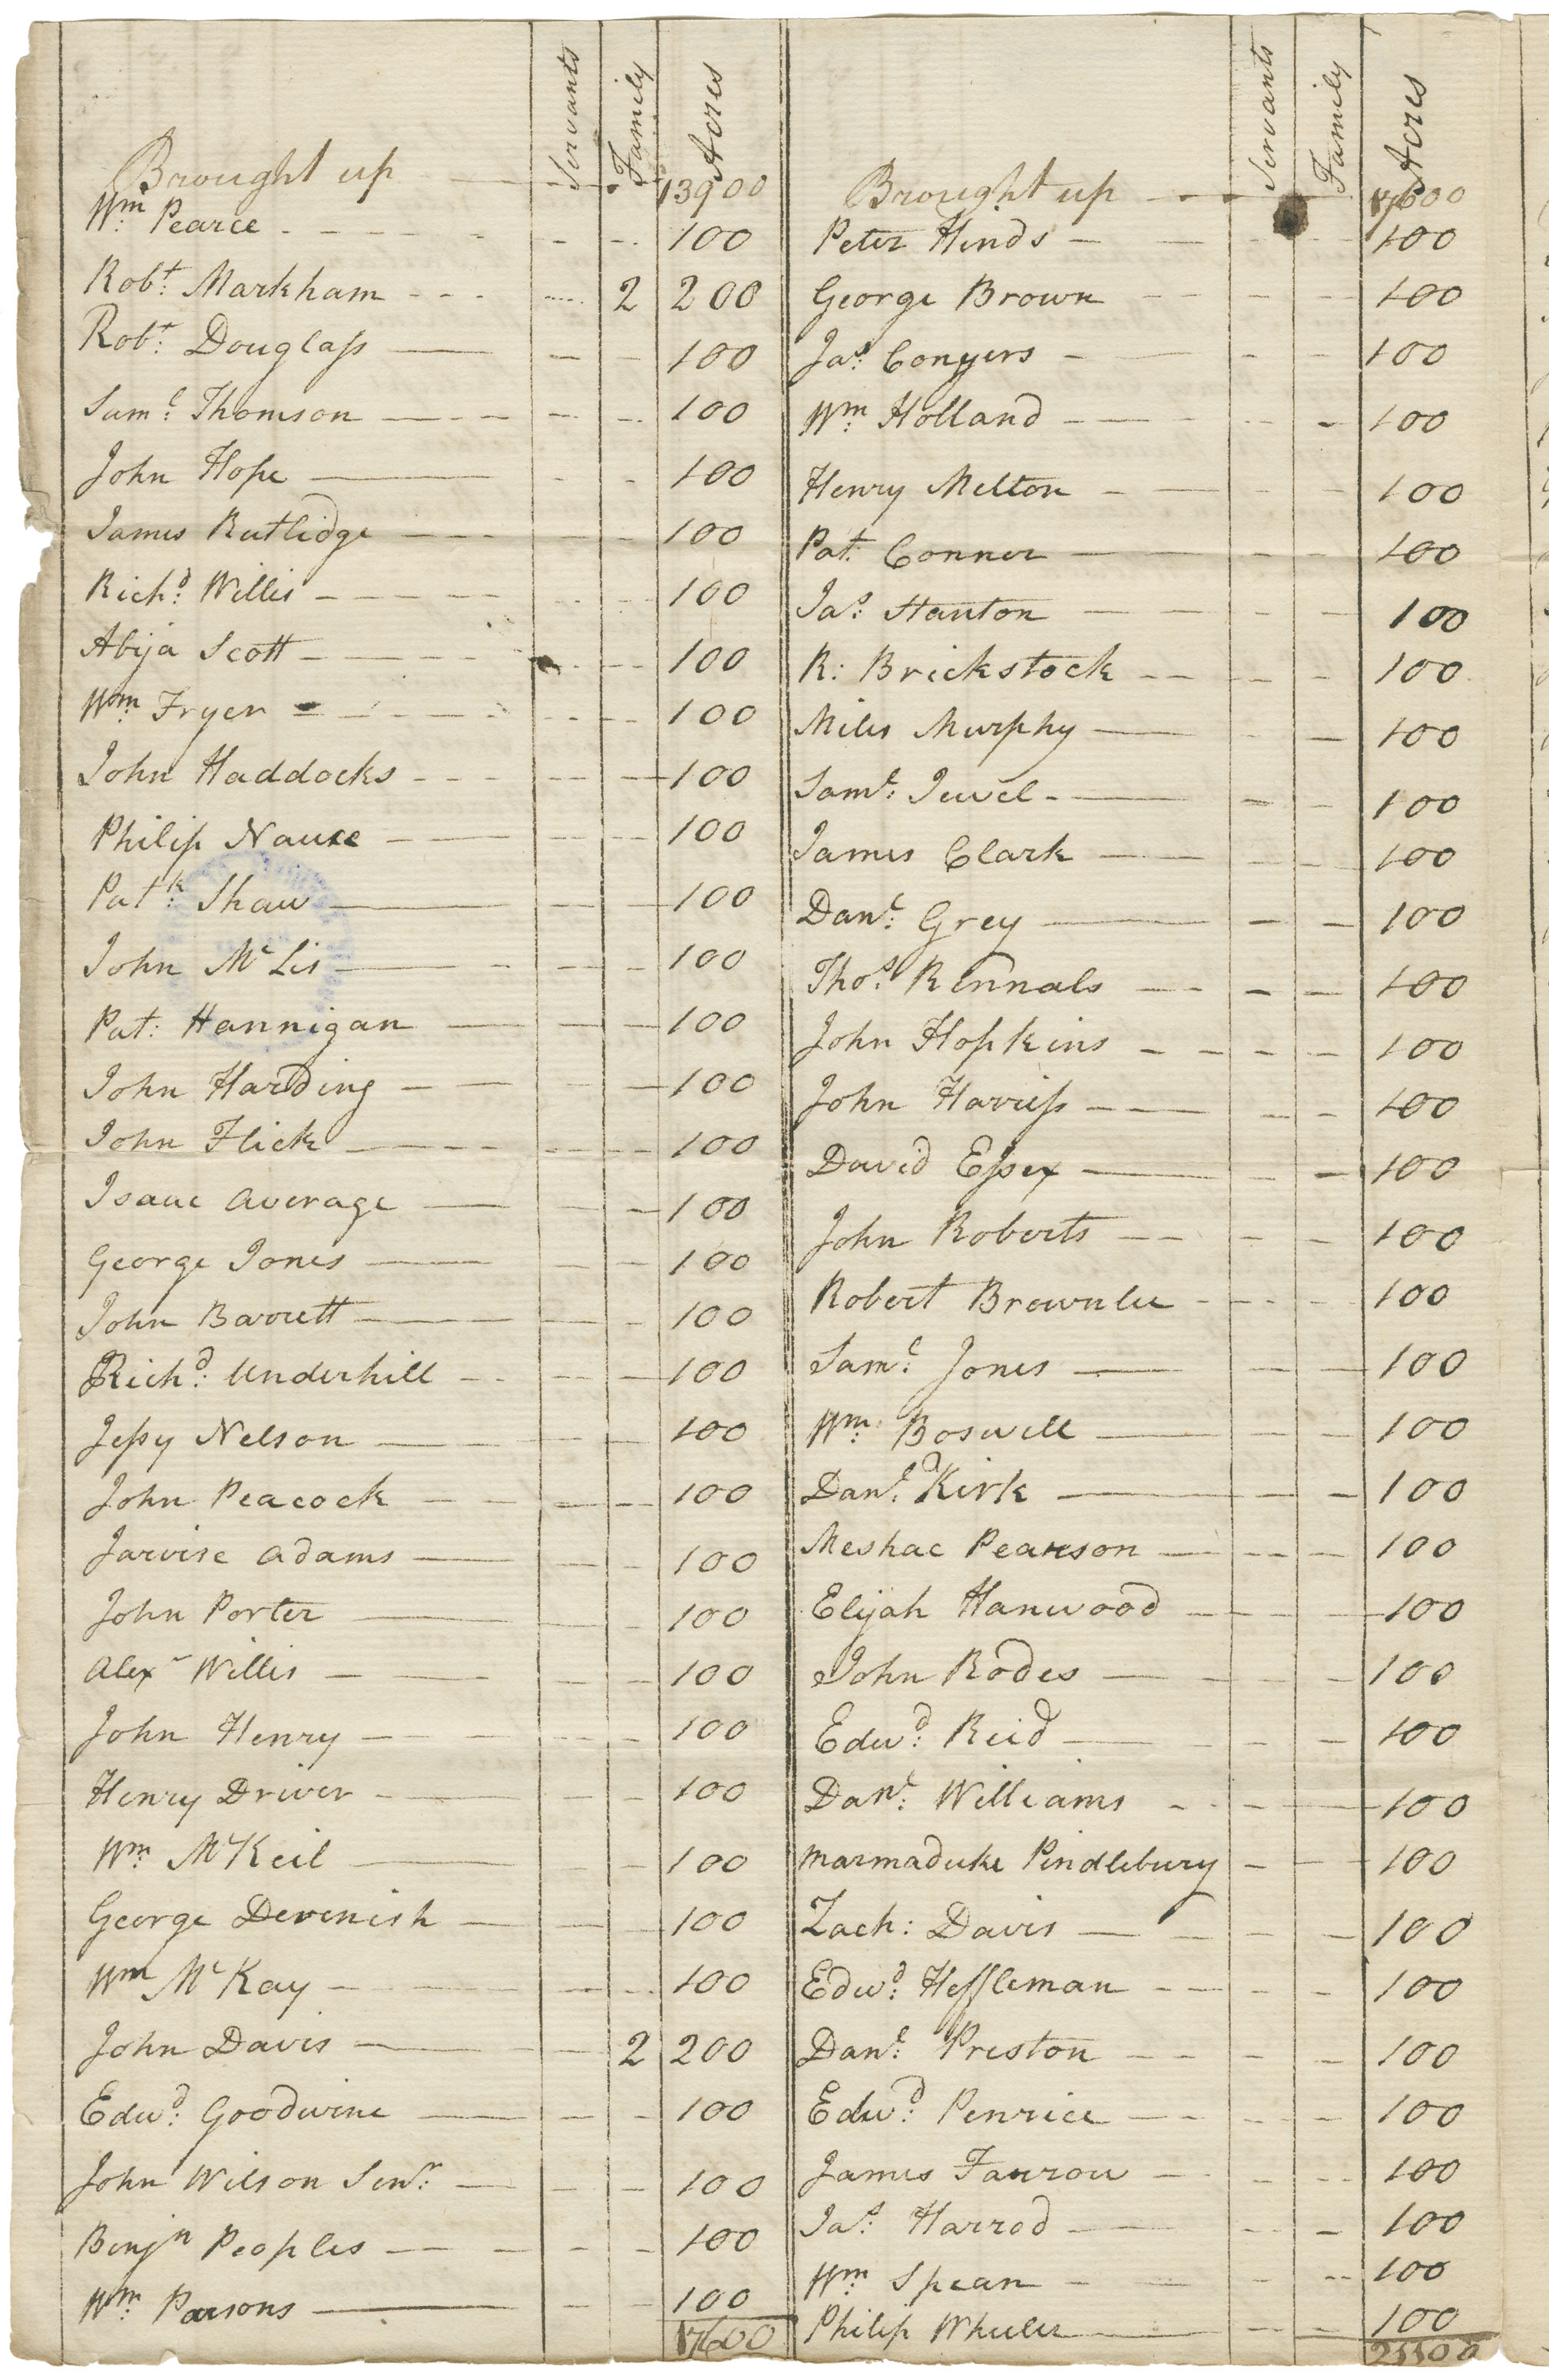 Servants Family Acres
Brought up 13900
Wm: Pearce 100
Robt: Markham 2 200
Robt: Douglass 100
Saml: Thomson 100
John Hope 100
James Rutlidge 100
Richd: Willis 100
Abija Scott 100
Wm: Fryer 100
John Haddocks 100
Philip 100
Patk: Shaw 100
John Mc Lis 100
Pat: Hannigan 100
John Harding 100
John Flick 100
Isaac Average 100
George Jones 100
John Barrett 100
Richd: Underhill 100
Jessy Nelson 100
John Peacock 100
Jarvise Adams 100
John Porter 100
Alexr Willis 100
John Henry 100
Henry Driver 100
Wm: McKeil 100
George Devenish 100
Wm Mc Kay 100
John Davis 2 200
Edwd: Goodwine 100
John Wilson Senr: 100
Benjn Peoples 100
Wm: Parsons 100
17600
Servants Family Acres
Brought up 17600
Peter Hinds 100
George Brown 100
Jas: Conyers 100
Wm: Holland 100
Henry Melton 100
Pat: Conner 100
Jas: Stanton 100
R: Brickstock 100
Miles Murphy 100
Saml: Jewel 100
James Clark 100
Danl: Grey 100
Thos: Rennals 100
John Hopkins 100
John Harriss 100
David Essex 100
John Roberts 100
Robert Brownlee 100
Saml: Jones 100
Wm: Boswell 100
Danl: Kirk 100
Meshac Pearson 100
Elijah Hanwood 100
John Rodes 100
Edwd: Reid 100
Danl: Williams 100
Marmaduke Pindlebury 100
Zach: Davis 100
Edwd: Heffleman 100
Danl: Preston 100
Edwd: Penrice 100
James Farrow 100
Jas: Harrod 100
Wm: Spean 100
Philip Wheeler 100
21100